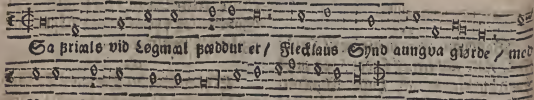 Sa þrials vid Løgmæl þæddur er / Flecklaus Synd aungva giørde / med